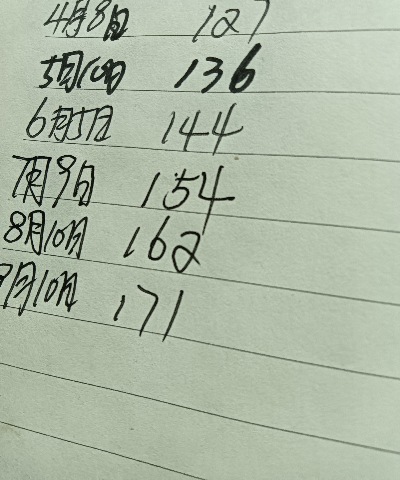 4月8日 127
5月10日 136
6月5日 144
7月9日 154
8月10日 162
9月10日 171